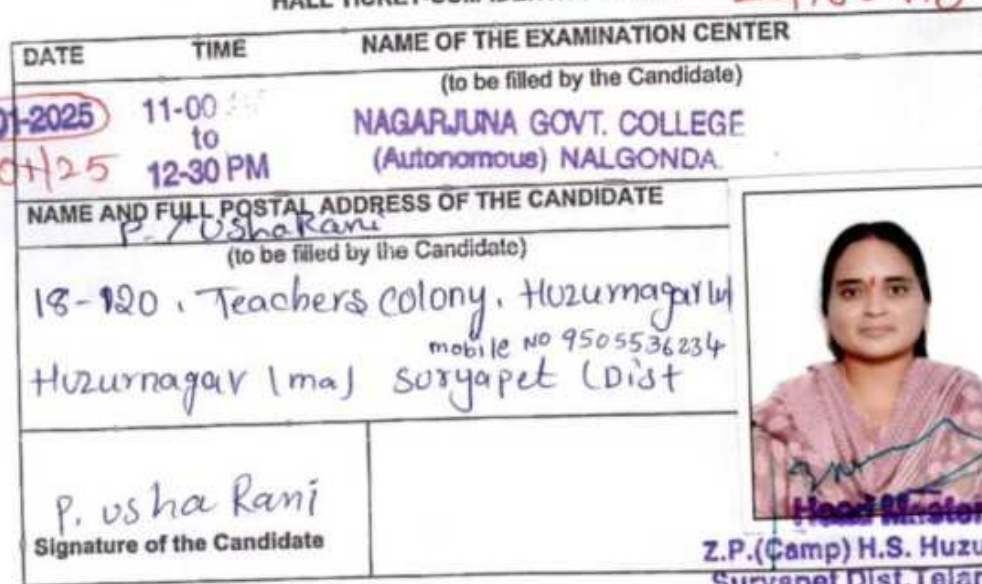 HALL TICKET-CUM-IDENT
DATE TIME NAME OF THE EXAMINATION CENTER
(to be filled by the Candidate)
01-2025 11-00 NAGARJUNA GOVT. COLLEGE
to
12-30 PM (Autonomous) NALGONDA
NAME AND FULL POSTAL ADDRESS OF THE CANDIDATE
P. Usha Rani
(to be filled by the Candidate)
18-120, Teachers colony, Huzurnagar
mobile NO 9505536234
Huzurnagar (ma) Suryapet (Dist
P. Usha Rani
Signature of the Candidate
Head Master
Z.P.(Camp) H.S. Huzu
Suryapet Dist Telan